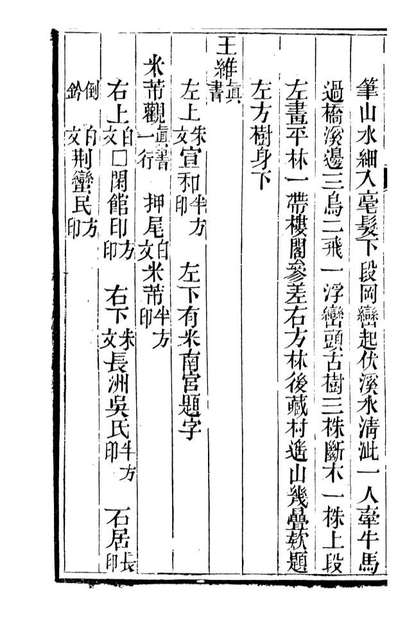 筆山水細入毫髮下段岡巒起伏溪水清泚一人牽牛馬
過橋溪邊三鳥二飛一浮巒頭古樹三株斷木一株上段
左畫平林一帶樓閣參差右方林後藏村遙山幾疊款題
左方樹身下
王維眞書
左上朱文宣和半方印　左下有米南宮題字
米芾觀眞書一行　押尾白文米芾半方印
右上白文□閑館方印　右下朱文長洲吳氏半方印　石居長印
倒鈐白文荆蠻民方印